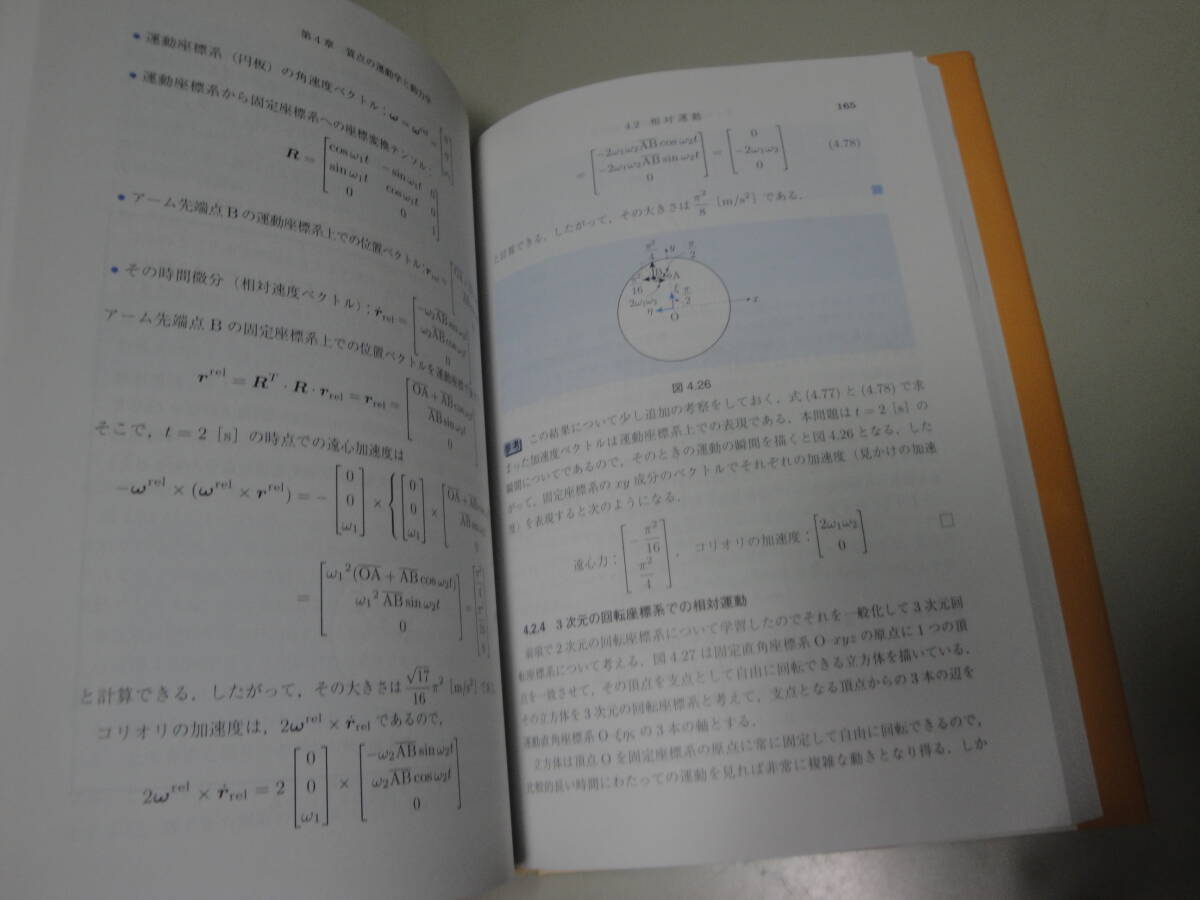 第4章 質点の運動学と動力学
• 運動座標系（円板）の角速度ベクトル：ω = ω^rel = [0 0
• 運動座標系から固定座標系への座標変換テンソル：
R = [cos ω₁t −sin ω₁t 0
sin ω₁t cos ω₁t 0
0 0 1]
• アーム先端点Bの運動座標系上での位置ベクトル：r_rel =
• その時間微分（相対速度ベクトル）：ṙ_rel = [−ω₂AB sin ω₂t
ω₂AB cos ω₂t
0]
アーム先端点Bの固定座標系上での位置ベクトルを運動座標
r^rel = R^T · R · r_rel = r_rel = [OA + AB cos ω₂t
AB sin ω₂t
0]
そこで，t = 2 [s] の時点での遠心加速度は
−ω^rel × (ω^rel × r^rel) = − [0 0 ω₁] × {[0 0 ω₁] × [OA + AB cos
AB sin ω₂
0
= [ω₁²(OA + AB cos ω₂t)
ω₁² AB sin ω₂t
0] =
と計算できる．したがって，その大きさは √17/16 π² [m/s²]
コリオリの加速度は，2ω^rel × ṙ_rel であるので，
2ω^rel × ṙ_rel = 2 [0 0 ω₁] × [−ω₂AB sin ω₂t
ω₂AB cos ω₂t
0]
4.2 相対運動
165
= [−2ω₁ω₂AB cos ω₂t
−2ω₁ω₂AB sin ω₂t
0] = [0
−2ω₁ω₂
0] (4.78)
と計算できる．したがって，その大きさは π²/8 [m/s²] である．
π²/4 y π/2
B A
π²/16
2ω₁ω₂ ξ π/2
η O x
図 4.26
参考 この結果について少し追加の考察をしておく．式 (4.77) と (4.78) で求
まった加速度ベクトルは運動座標系上での表現である．本問題は t = 2 [s] の
瞬間についてであるので，そのときの運動の瞬間を描くと図 4.26 となる．した
がって，固定座標系の xy 成分のベクトルでそれぞれの加速度（見かけの加速
度）を表現すると次のようになる．
遠心力：[−π²/16
π²/4]， コリオリの加速度：[2ω₁ω₂
0]
4.2.4 3次元の回転座標系での相対運動
前項で2次元の回転座標系について学習したのでそれを一般化して3次元回
転座標系について考える．図 4.27 は固定直角座標系 O–xyz の原点に1つの頂
点を一致させて，その頂点を支点として自由に回転できる立方体を描いている．
その立方体を3次元の回転座標系と考えて，支点となる頂点からの3本の辺を
運動直角座標系 O–ξηζ の3本の軸とする．
立方体は頂点Oを固定座標系の原点に常に固定して自由に回転できるので，
比較的長い時間にわたっての運動を見れば非常に複雑な動きとなり得る．しか